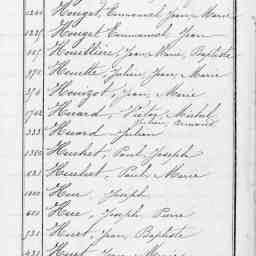 Houget, Emmanuel Jean Marie
1257 Houget Emmanuel Jean
Houillière, Jean, Marie, Baptiste
Houitte, Julien, Jean, Marie
376 Houizot, Jean, Marie
1762 Huard, Victor, Michel,
Armand
333 Huard Julien
1380 Huchet, Paul, Joseph
621 Huchet, Paul, Marie
1000 Hue, Joseph
600 Hue, Joseph Pierre
721 Huet, Jean, Baptiste
431 Huet, Jean, Marie